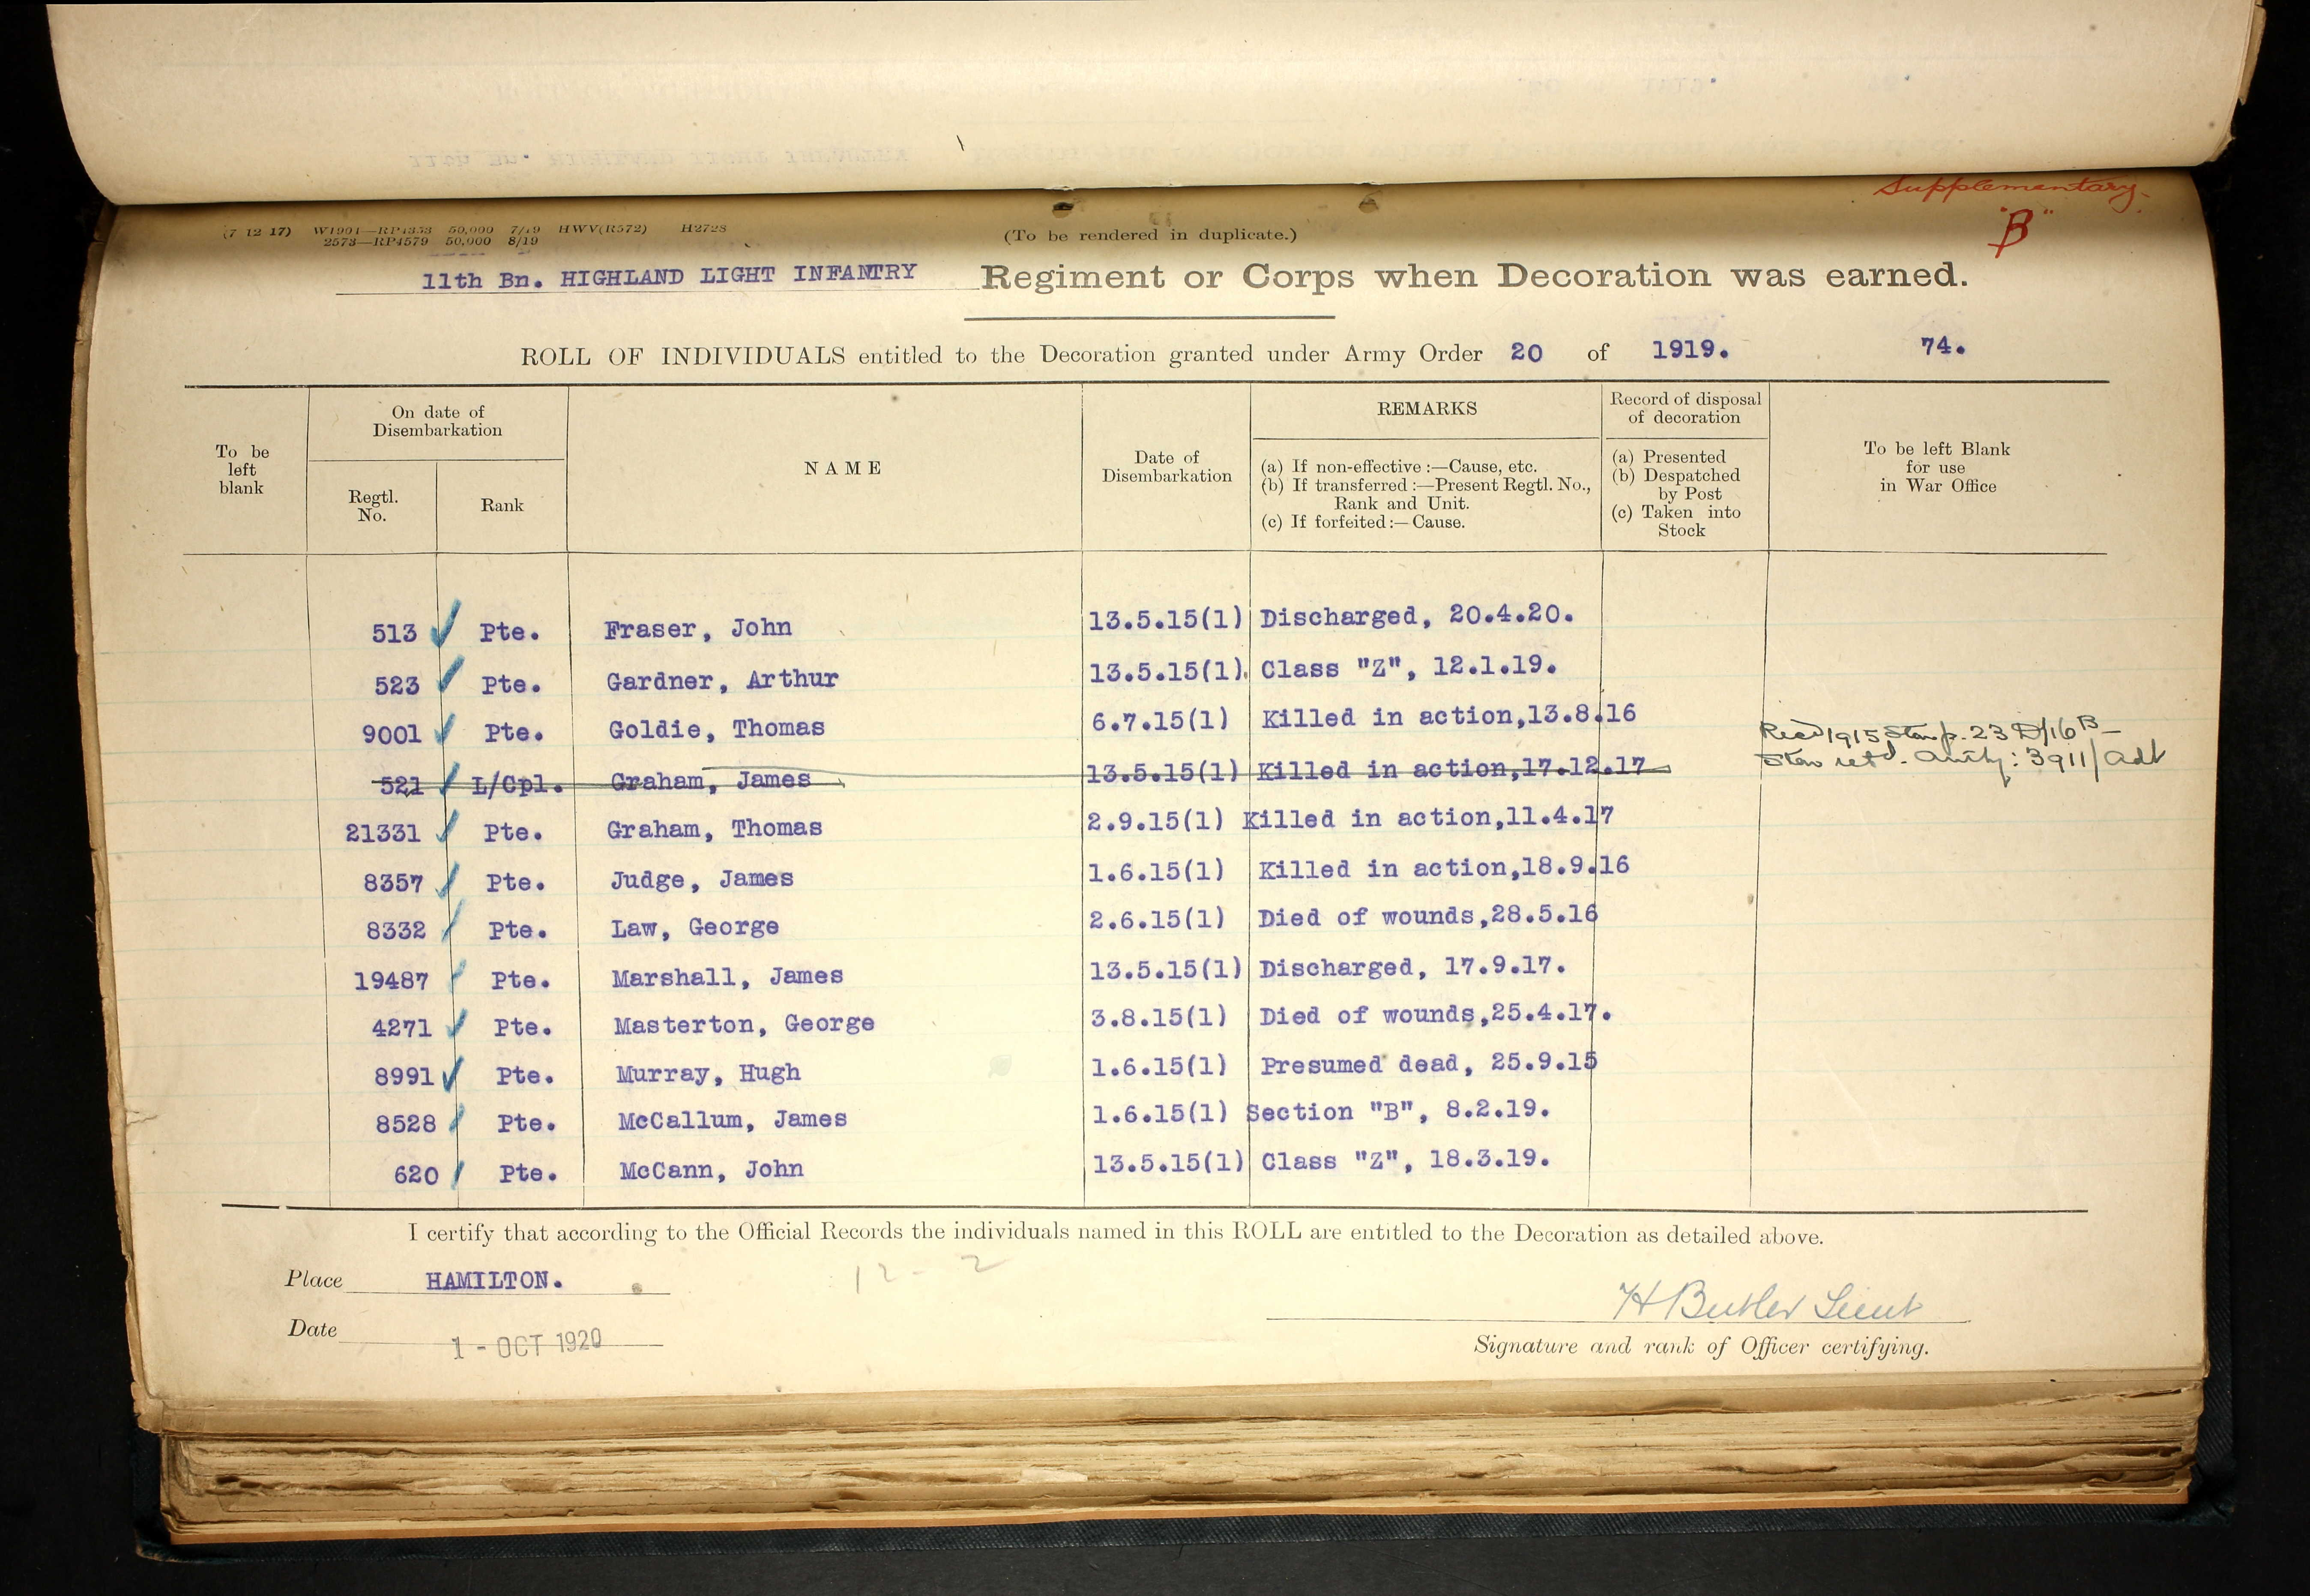 Supplementary.
"B"
(7 12 17) W1901—RP4353 50,000 7/19 HWV(R572) H2728
2573—RP4579 50,000 8/19
(To be rendered in duplicate.)
11th Bn. HIGHLAND LIGHT INFANTRY Regiment or Corps when Decoration was earned.
ROLL OF INDIVIDUALS entitled to the Decoration granted under Army Order 20 of 1919. 74.
To be left blank
On date of Disembarkation
Regtl. No.
Rank
NAME
Date of Disembarkation
REMARKS
(a) If non-effective :—Cause, etc.
(b) If transferred :—Present Regtl. No., Rank and Unit.
(c) If forfeited :—Cause.
Record of disposal of decoration
(a) Presented
(b) Despatched by Post
(c) Taken into Stock
To be left Blank for use in War Office
513 Pte. Fraser, John 13.5.15(1) Discharged, 20.4.20.
523 Pte. Gardner, Arthur 13.5.15(1). Class "Z", 12.1.19.
9001 Pte. Goldie, Thomas 6.7.15(1) Killed in action,13.8.16
521 L/Cpl. Graham, James 13.5.15(1) Killed in action,17.12.17
Recd 1915 Star p. 23 D/16 B
Star retd. Auty: 3911/Adt
21331 Pte. Graham, Thomas 2.9.15(1) Killed in action,11.4.17
8357 Pte. Judge, James 1.6.15(1) Killed in action,18.9.16
8332 Pte. Law, George 2.6.15(1) Died of wounds,28.5.16
19487 Pte. Marshall, James 13.5.15(1) Discharged, 17.9.17.
4271 Pte. Masterton, George 3.8.15(1) Died of wounds,25.4.17.
8991 Pte. Murray, Hugh 1.6.15(1) Presumed dead, 25.9.15
8528 Pte. McCallum, James 1.6.15(1) Section "B", 8.2.19.
620 Pte. McCann, John 13.5.15(1) Class "Z", 18.3.19.
I certify that according to the Official Records the individuals named in this ROLL are entitled to the Decoration as detailed above.
Place HAMILTON.
12 - 2
H Butler Lieut
Date 1 - OCT 1920
Signature and rank of Officer certifying.